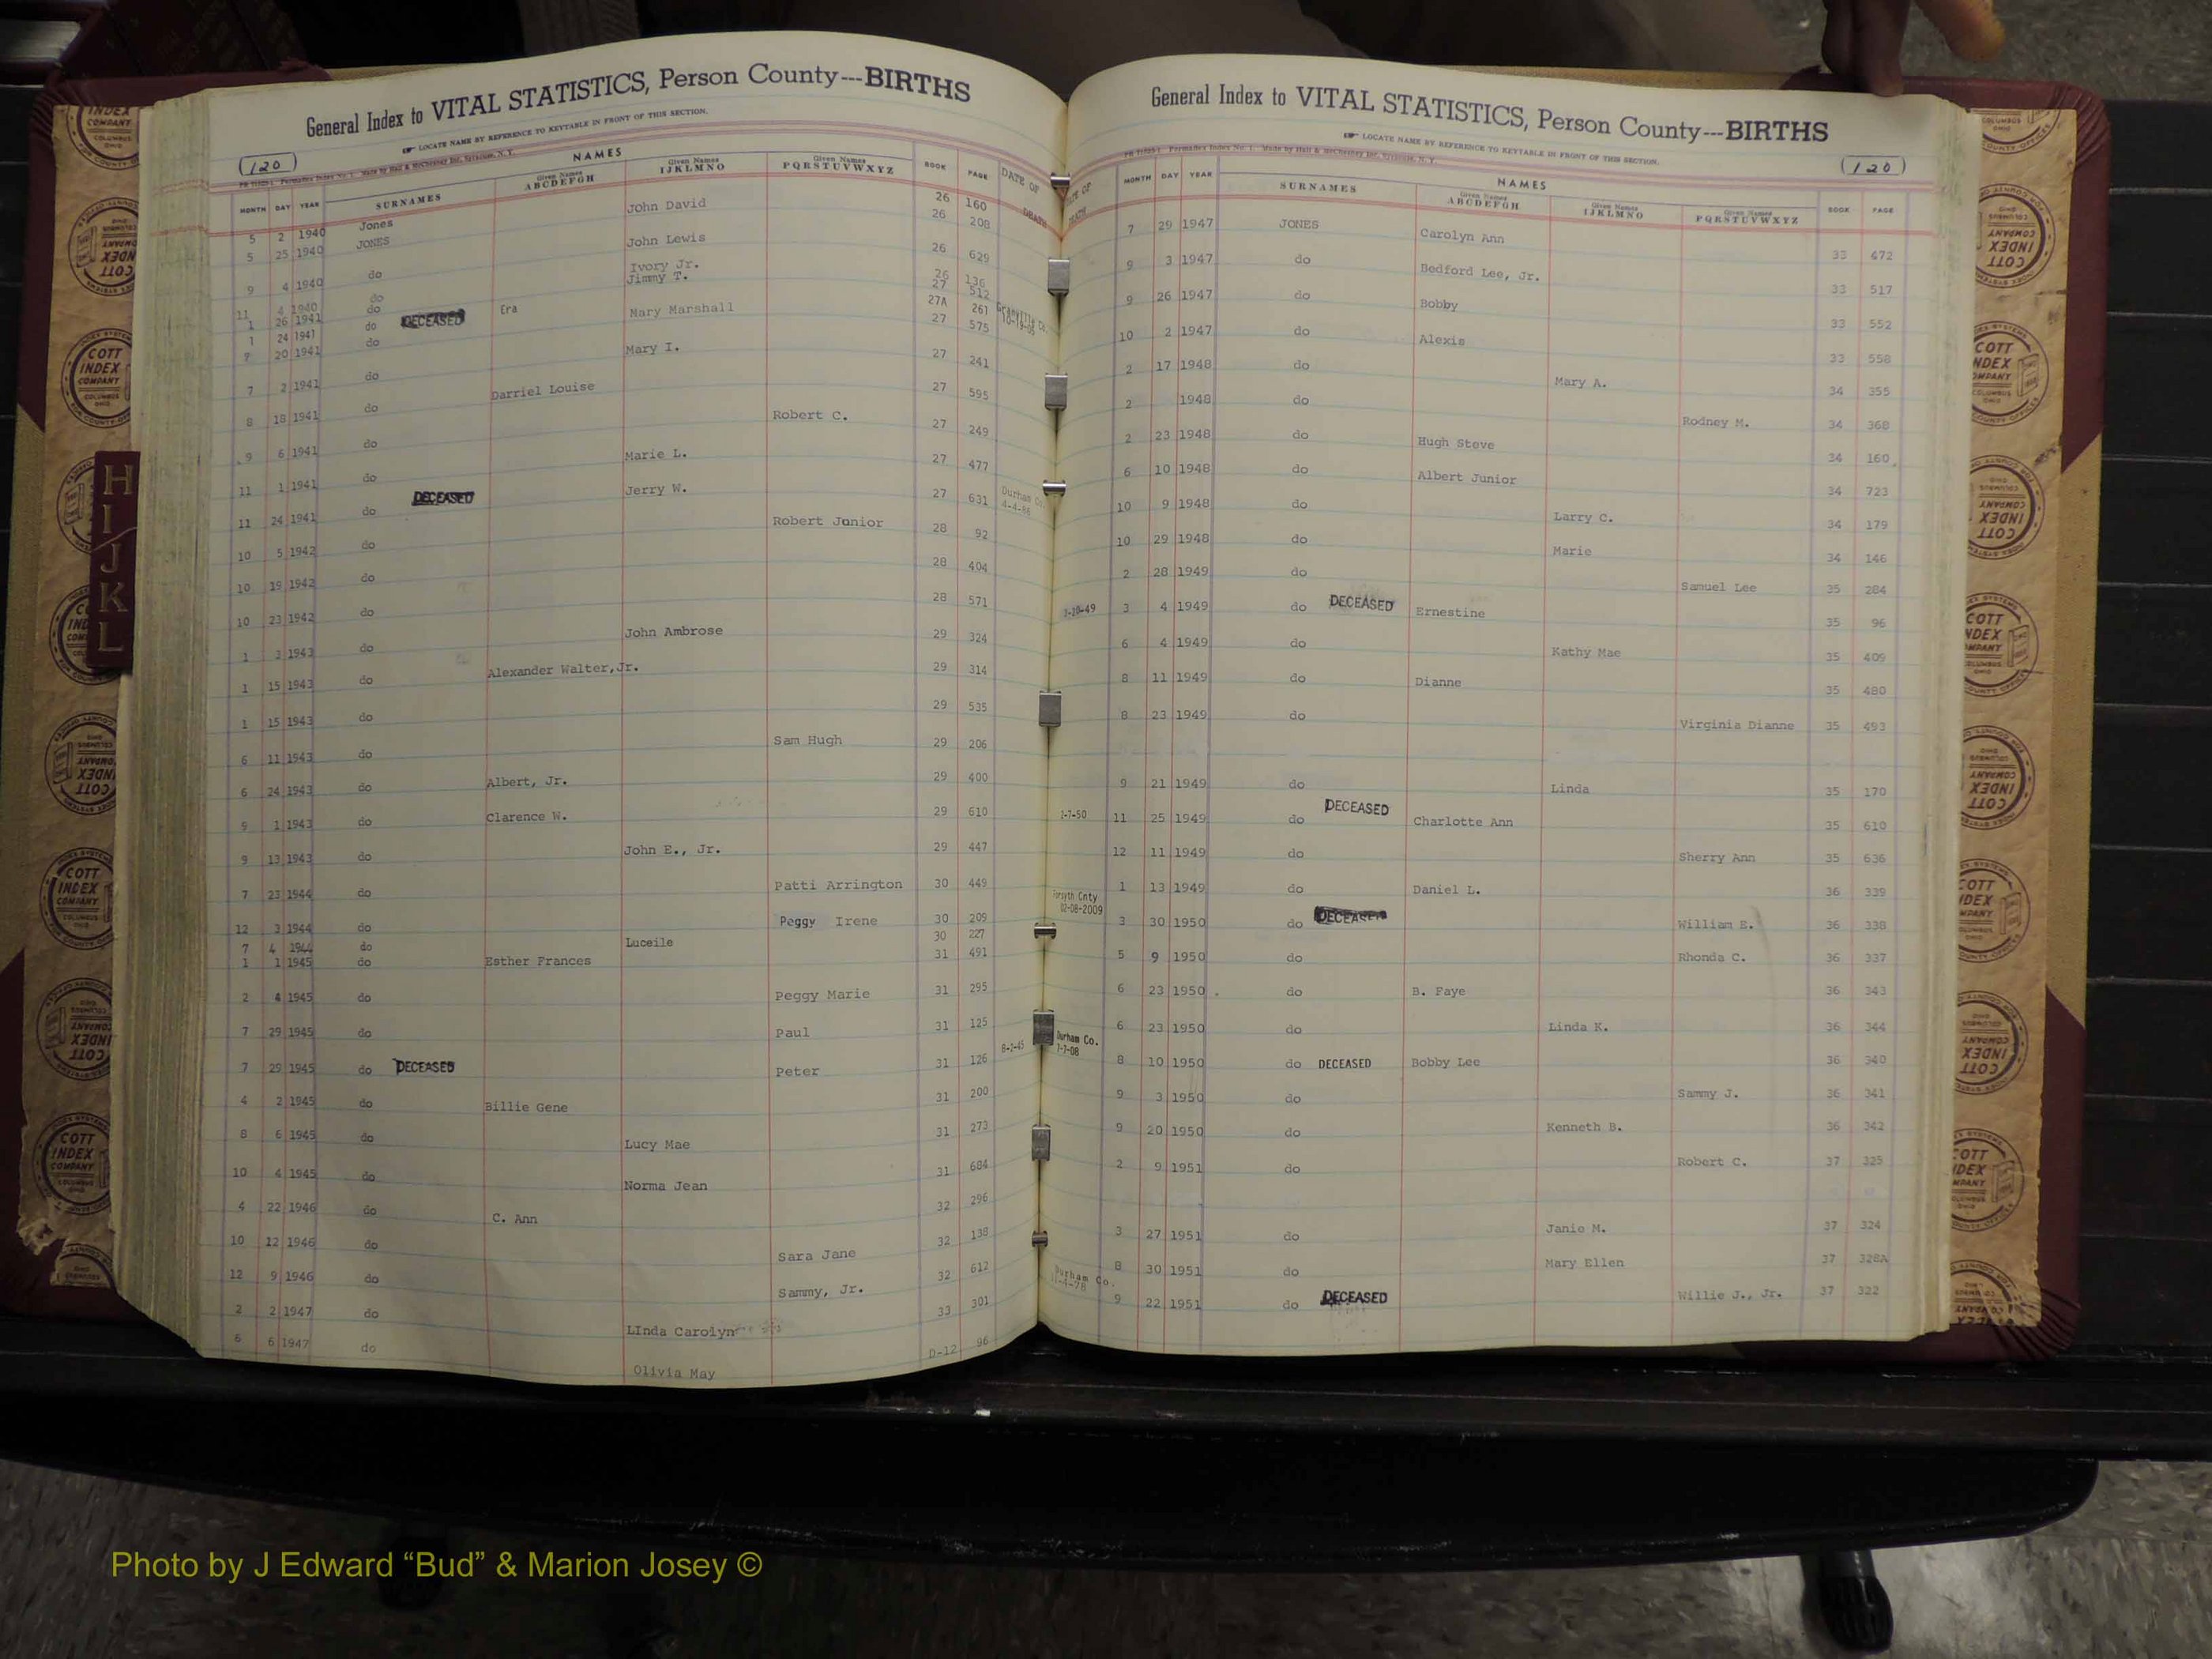 General Index to VITAL STATISTICS, Person County---BIRTHS
LOCATE NAME BY REFERENCE TO KEYTABLE IN FRONT OF THIS SECTION.
120
NAMES
MONTH DAY YEAR SURNAMES Given Names ABCDEFGH Given Names IJKLMNO Given Names PQRSTUVWXYZ BOOK PAGE DATE OF DEATH
5 2 1940 Jones John David 26 160
5 25 1940 JONES John Lewis 26 208
9 4 1940 do Ivory Jr. 26 629
11 4 1940 do Jimmy T. 26 136
1 26 1941 do 27 512
1 24 1941 do DECEASED Era 27A 261
? 20 1941 do Mary Marshall 27 575
7 2 1941 do Mary I. 27 241
8 18 1941 do Darriel Louise 27 595
9 6 1941 do Robert C. 27 249
11 1 1941 do Marie L. 27 477
11 24 1941 do DECEASED Jerry W. 27 631 Durham Co. 4-4-86
10 5 1942 do Robert Junior 28 92
10 19 1942 do 28 404
10 23 1942 do 28 571
1 3 1943 do John Ambrose 29 324
1 15 1943 do Alexander Walter,Jr. 29 314
1 15 1943 do 29 535
6 11 1943 do Sam Hugh 29 206
6 24 1943 do Albert, Jr. 29 400
9 1 1943 do Clarence W. 29 610
9 13 1943 do John E., Jr. 29 447
7 23 1944 do Patti Arrington 30 449
12 3 1944 do Peggy Irene 30 209
7 4 1944 do Luceile 30 227
1 1 1945 do Esther Frances 31 491
2 4 1945 do Peggy Marie 31 295
7 29 1945 do Paul 31 125
7 29 1945 do DECEASED Peter 31 126 8-2-45
4 2 1945 do Billie Gene 31 200
8 6 1945 do Lucy Mae 31 273
10 4 1945 do Norma Jean 31 684
4 22 1946 do C. Ann 32 296
10 12 1946 do Sara Jane 32 138
12 9 1946 do Sammy, Jr. 32 612
2 2 1947 do LInda Carolyn 33 301
6 6 1947 do Olivia May D-12 96
General Index to VITAL STATISTICS, Person County---BIRTHS
LOCATE NAME BY REFERENCE TO KEYTABLE IN FRONT OF THIS SECTION.
120
NAMES
DATE OF DEATH MONTH DAY YEAR SURNAMES Given Names ABCDEFGH Given Names IJKLMNO Given Names PQRSTUVWXYZ BOOK PAGE
7 29 1947 JONES Carolyn Ann 33 472
9 3 1947 do Bedford Lee, Jr. 33 517
9 26 1947 do Bobby 33 552
10 2 1947 do Alexis 33 558
2 17 1948 do Mary A. 34 355
2 1948 do Rodney M. 34 368
2 23 1948 do Hugh Steve 34 160
6 10 1948 do Albert Junior 34 723
10 9 1948 do Larry C. 34 179
10 29 1948 do Marie 34 146
2 28 1949 do Samuel Lee 35 284
3 4 1949 do DECEASED Ernestine 35 96
6 4 1949 do Kathy Mae 35 409
8 11 1949 do Dianne 35 480
8 23 1949 do Virginia Dianne 35 493
9 21 1949 do Linda 35 170
2-7-50 11 25 1949 do DECEASED Charlotte Ann 35 610
12 11 1949 do Sherry Ann 35 636
1 13 1949 do Daniel L. 36 339
Forsyth Cnty 02-08-2009 3 30 1950 do DECEASED William E. 36 338
5 9 1950 do Rhonda C. 36 337
6 23 1950 do B. Faye 36 343
6 23 1950 do Linda K. 36 344
Durham Co. 7-7-08 8 10 1950 do DECEASED Bobby Lee 36 340
9 3 1950 do Sammy J. 36 341
9 20 1950 do Kenneth B. 36 342
2 9 1951 do Robert C. 37 325
3 27 1951 do Janie M. 37 324
8 30 1951 do Mary Ellen 37 328A
Durham Co. 9 22 1951 do DECEASED Willie J., Jr. 37 322
H I J K L
COTT INDEX COMPANY COLUMBUS OHIO
Photo by J Edward “Bud” & Marion Josey ©